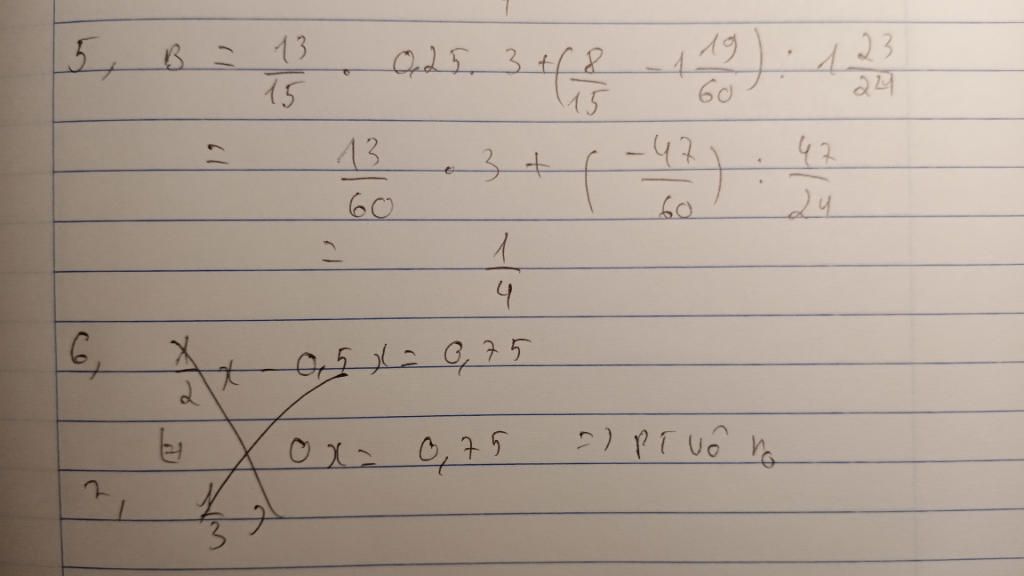 5, B = 13/15 . 0,25. 3 + (8/15 - 1 19/60) : 1 23/24
= 13/60 . 3 + (-47/60) : 47/24
= 1/4
6, x/2 x - 0,5 x = 0,75
0x = 0,75 => PT vô no
7, 1/3